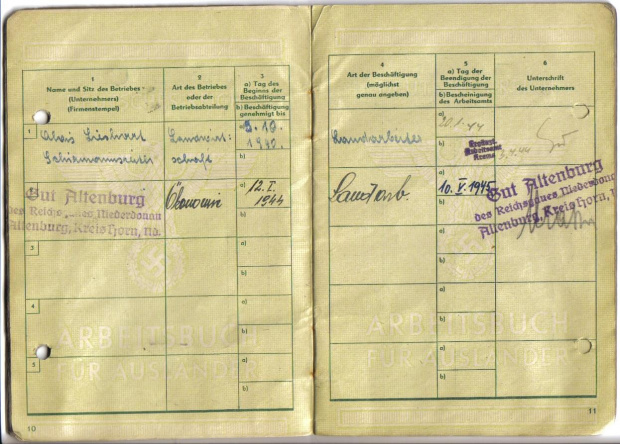 1
Name und Sitz des Betriebes
(Unternehmers)
(Firmenstempel)
2
Art des Betriebes
oder der
Betriebsabteilung
3
a) Tag des
Beginns der
Beschäftigung
b) Beschäftigung
genehmigt bis
1
Alois
Landwirt-
schaft
a)
b)
Gut Altenburg
des Reichsgaues Niederdonau
Altenburg, Kreis Horn, nd.
Ökonomie
a) 12. I.
1944
b)
3
a)
b)
4
a)
b)
5
a)
b)
ARBEITSBUCH
FÜR AUSLÄNDER
10
4
Art der Beschäftigung
(möglichst
genau angeben)
5
a) Tag der
Beendigung der
Beschäftigung
b) Bescheinigung
des Arbeitsamts
6
Unterschrift
des Unternehmers
Landarbeiter
a)
b)
Arbeitsamt
Krems
Landarb.
a) 10. V. 1945
b)
Gut Altenburg
des Reichsgaues Niederdonau
Altenburg, Kreis Horn, nd.
a)
b)
a)
b)
a)
b)
ARBEITSBUCH
FÜR AUSLÄNDER
11